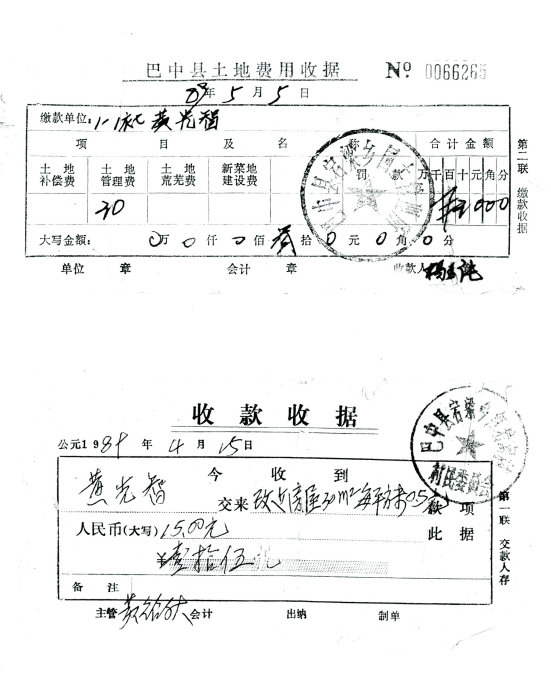 巴中县土地费用收据 № 0066265
年 5 月 5 日
缴款单位: 黄光智
项 目 及 名 称 合计金额
土地补偿费 土地管理费 土地荒芜费 新菜地建设费 罚款 万千百十元角分
30 3000
大写金额: 0万 0仟 0佰 叁拾 0元 0角 0分
单位 章 会计 章 收款人
第二联 缴款收据
收款收据
公元1989年 4月 15日
今收到
黄光智 交来 改占房屋30m² 每平方米0.5元 款项
人民币(大写) 15.00元 此据
¥壹拾伍元
备注
主管 会计 出纳 制单
第一联 交款人存
村民委员会